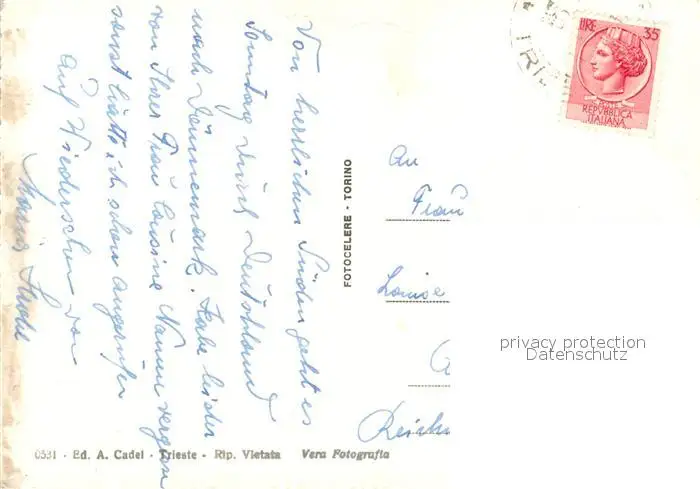 Vom herrlichen Süden geht es
Sonntag durch Deutschland
nach Dänemark. Habe leider
von Ihrer Frau Cousine Namen vergessen
sonst hätte ich schon angerufen
Auf Wiedersehen von
FOTOCELERE - TORINO
LIRE 35
POSTE
REPVBBLICA
ITALIANA
An
Frau
Louise
privacy protection
Datenschutz
0531 - Ed. A. Cadel - Trieste - Rip. Vietata Vera Fotografia